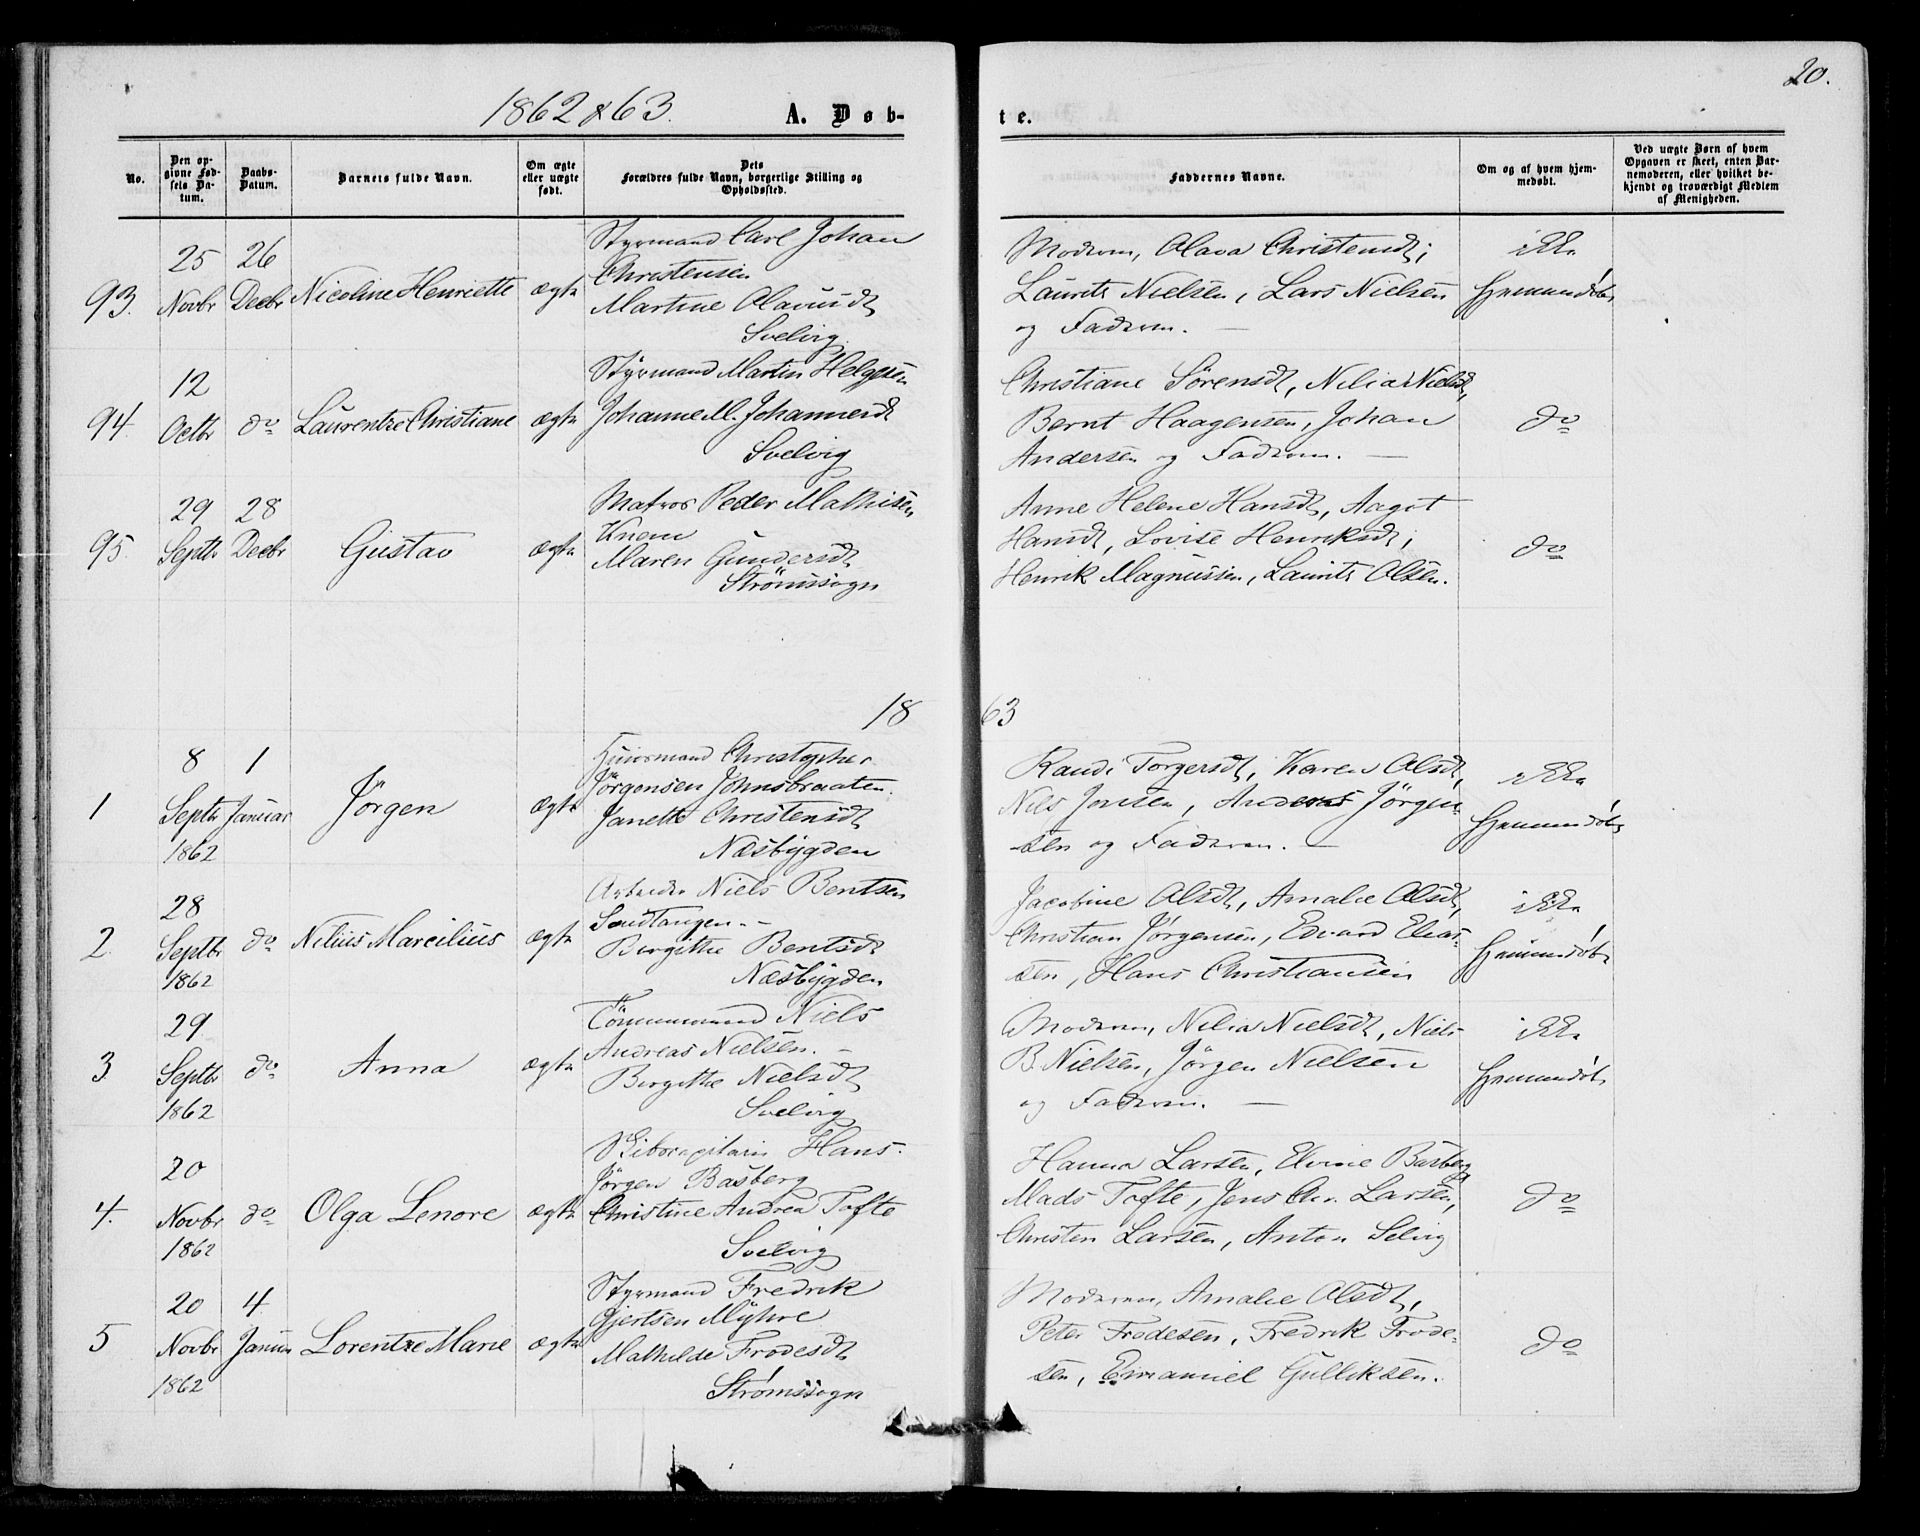 20.
1862 & 63. A. Døb-
te.
No.
Den op-
givne Fød-
sels Da-
tum.
Daabs-
Datum.
Barnets fulde Navn.
Om ægte
eller uægte
født.
Dets
Forældres fulde Navn, borgerlige Stilling og
Opholdssted.
Faddernes Navne.
Om og af hvem hjem-
medøbt.
Ved uægte Børn af hvem
Opgaven er skeet, enten Bar-
nemoderen, eller hvilket be-
kjendt og troværdigt Medlem
af Menigheden.
93. 25 Novbr 26 Decbr Nicoline Henriette ægte
Styrmand Carl Johan
Christensen
Martine Olavusdt
Svelvig.
Moderen, Olava Christensdt;
Laurits Nielsen, Lars Nielsen
og Faderen. —
ikke
hjemmedøbt
94. 12 Octbr do Laurentze Christiane ægte
Styrmand Martin Helgesen
Johanne M. Johannesdt
Svelvig
Christiane Sörensdt, Nilia Nielsdt,
Bernt Haagensen, Johan
Andersen og Faderen. —
do
95. 29 Septbr 28 Decbr Gustav ægte
Matros Peder Mathisen
Knem
Maren Gundersdt
Strömssogn
Anne Helene Hansdt, Aagot
Hansdt, Lovise Henriksdt;
Henrik Magnussen, Laurits Olsen.
do
1863
1 8 Septbr 1862 1 Januar Jörgen ægte
Huusmand Christopher
Jörgensen Johnsbraaten.
Janette Christensdt
Næsbygden
Randi Torgersdt, Karen Olsdt,
Niels Jonsen, Anders Jörgen-
sen og Faderen. —
ikke
hjemmedøbt
2. 28 Septbr 1862 do Nilius Marcilius ægte
Arbeider Niels Bentsen
Sandtangen. -
Birgitte Bentsdt
Næsbygden
Jacobine Olsdt, Amalie Olsdt,
Christian Jørgensen, Edvard Elias-
sen, Hans Christiansen
ikke
hjemmedøbt
3. 29 Septbr 1862 do Anna ægte
Tömmermand Niels
Andreas Nielsen. -
Birgitte Nielsdt
Svelvig
Moderen, Nilia Nielsdt, Niels
B. Nielsen, Jörgen Nielsen
og Faderen. —
ikke
hjemmedøbt
4. 20 Novbr 1862 do Olga Lenore ægte
Skibscapitain Hans
Jörgen Basberg
Christine Andrea Tofte
Svelvig
Hanna Larsen, Elvine Basberg
Mads Tofte, Jens Chr. Larsen,
Christen Larsen, Anton Selvig
do
5 20 Novbr 1862 4 Januar Lorentze Marie ægte
Styrmand Fredrik
Gjertsen Myhre
Mathilde Frodesdt
Strømssogn
Moderen, Amalie Olsdt,
Peter Frodesen, Fredrik Frode-
sen, Emanuel Gulliksen.
do